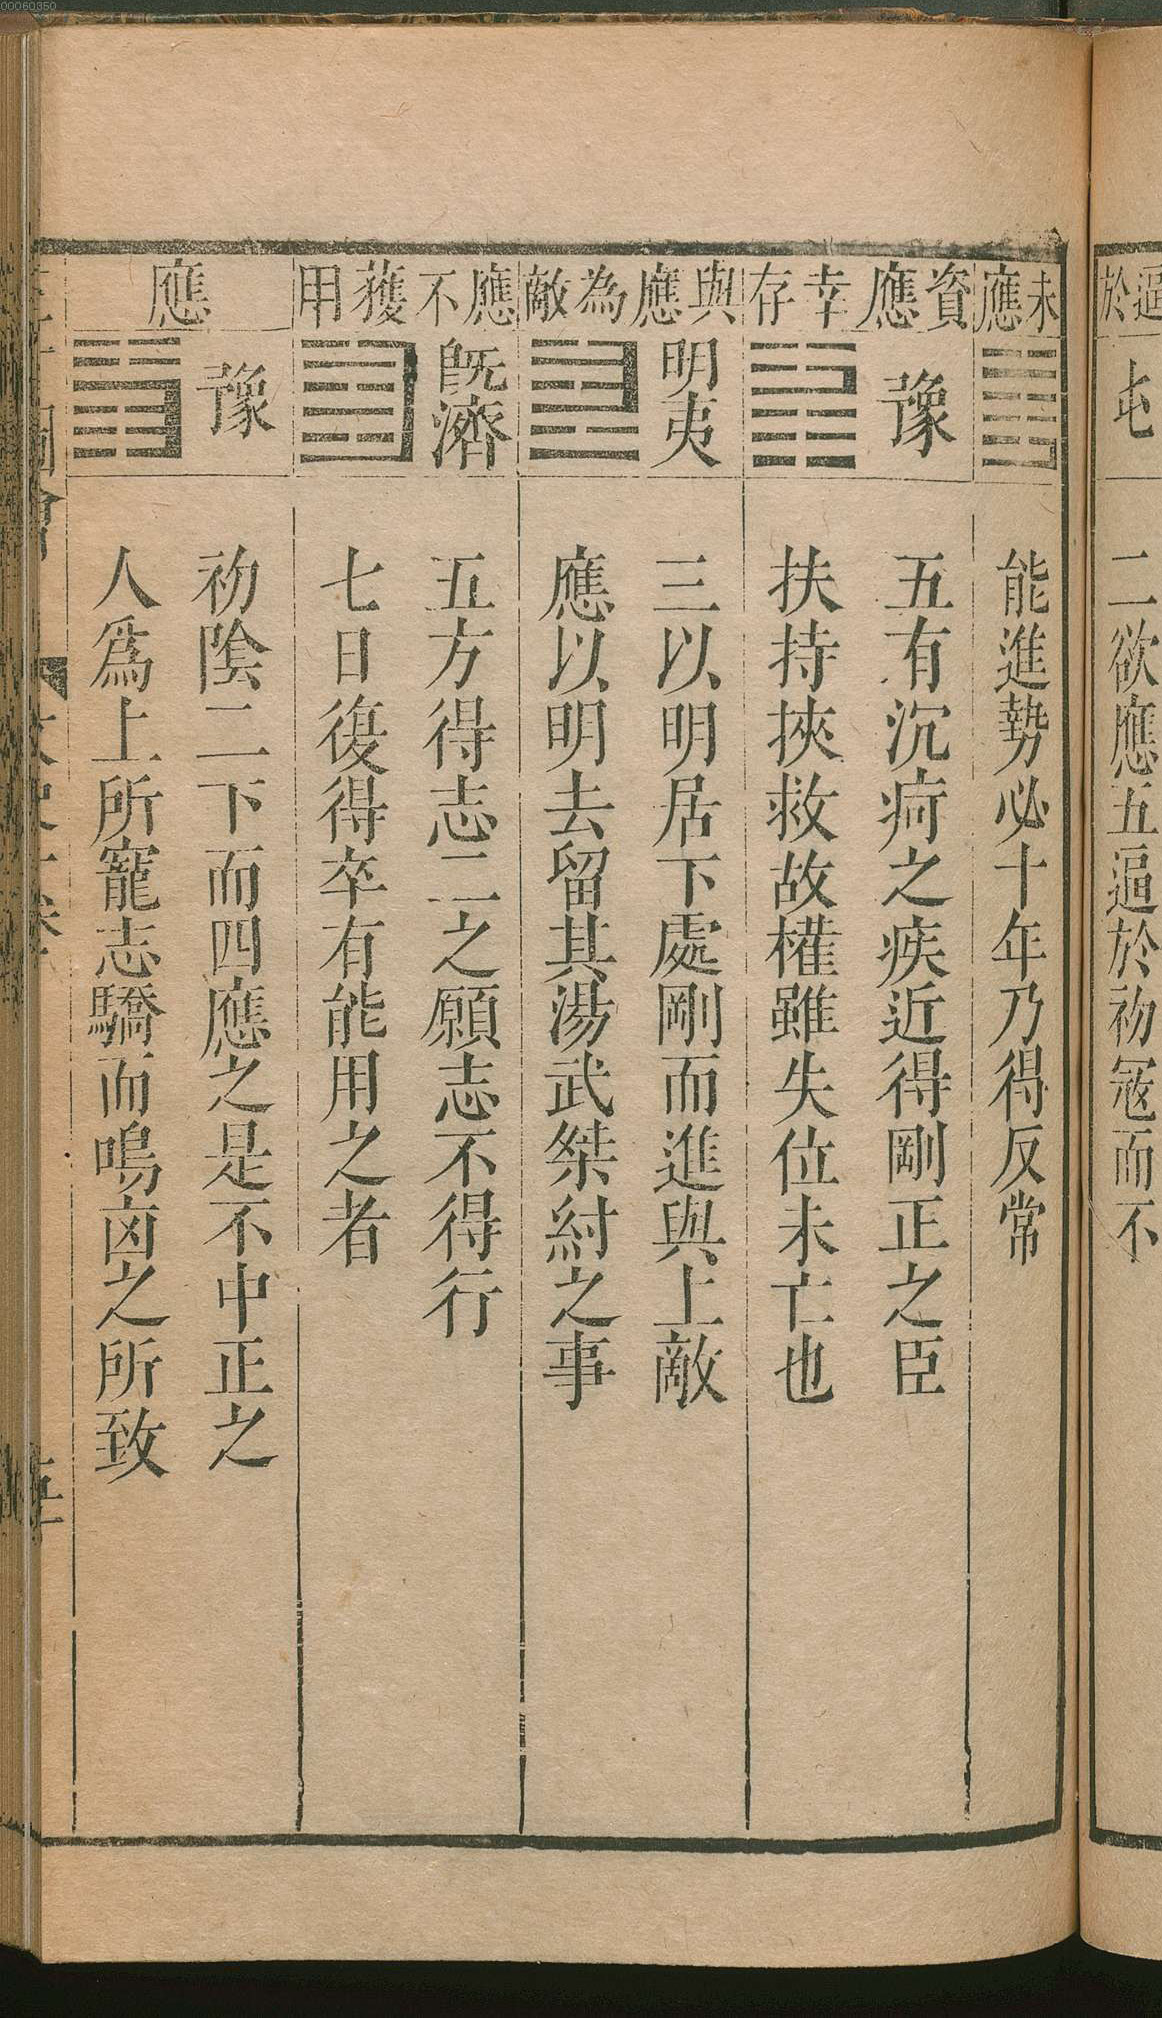 00060350
逼於
屯
二欲應五逼於初宼而不
未應
能進勢必十年乃得反常
資應幸存
豫
五有沉疴之疾近得剛正之臣
扶持挾救故權雖失位未亡也
與應為敵
明夷
三以明居下處剛而進與上敵
應以明去留其湯武桀紂之事
應不獲用
旣濟
五方得志二之願志不得行
七日復得卒有能用之者
應
豫
初隂二下而四應之是不中正之
人爲上所寵志驕而鳴㐫之所致